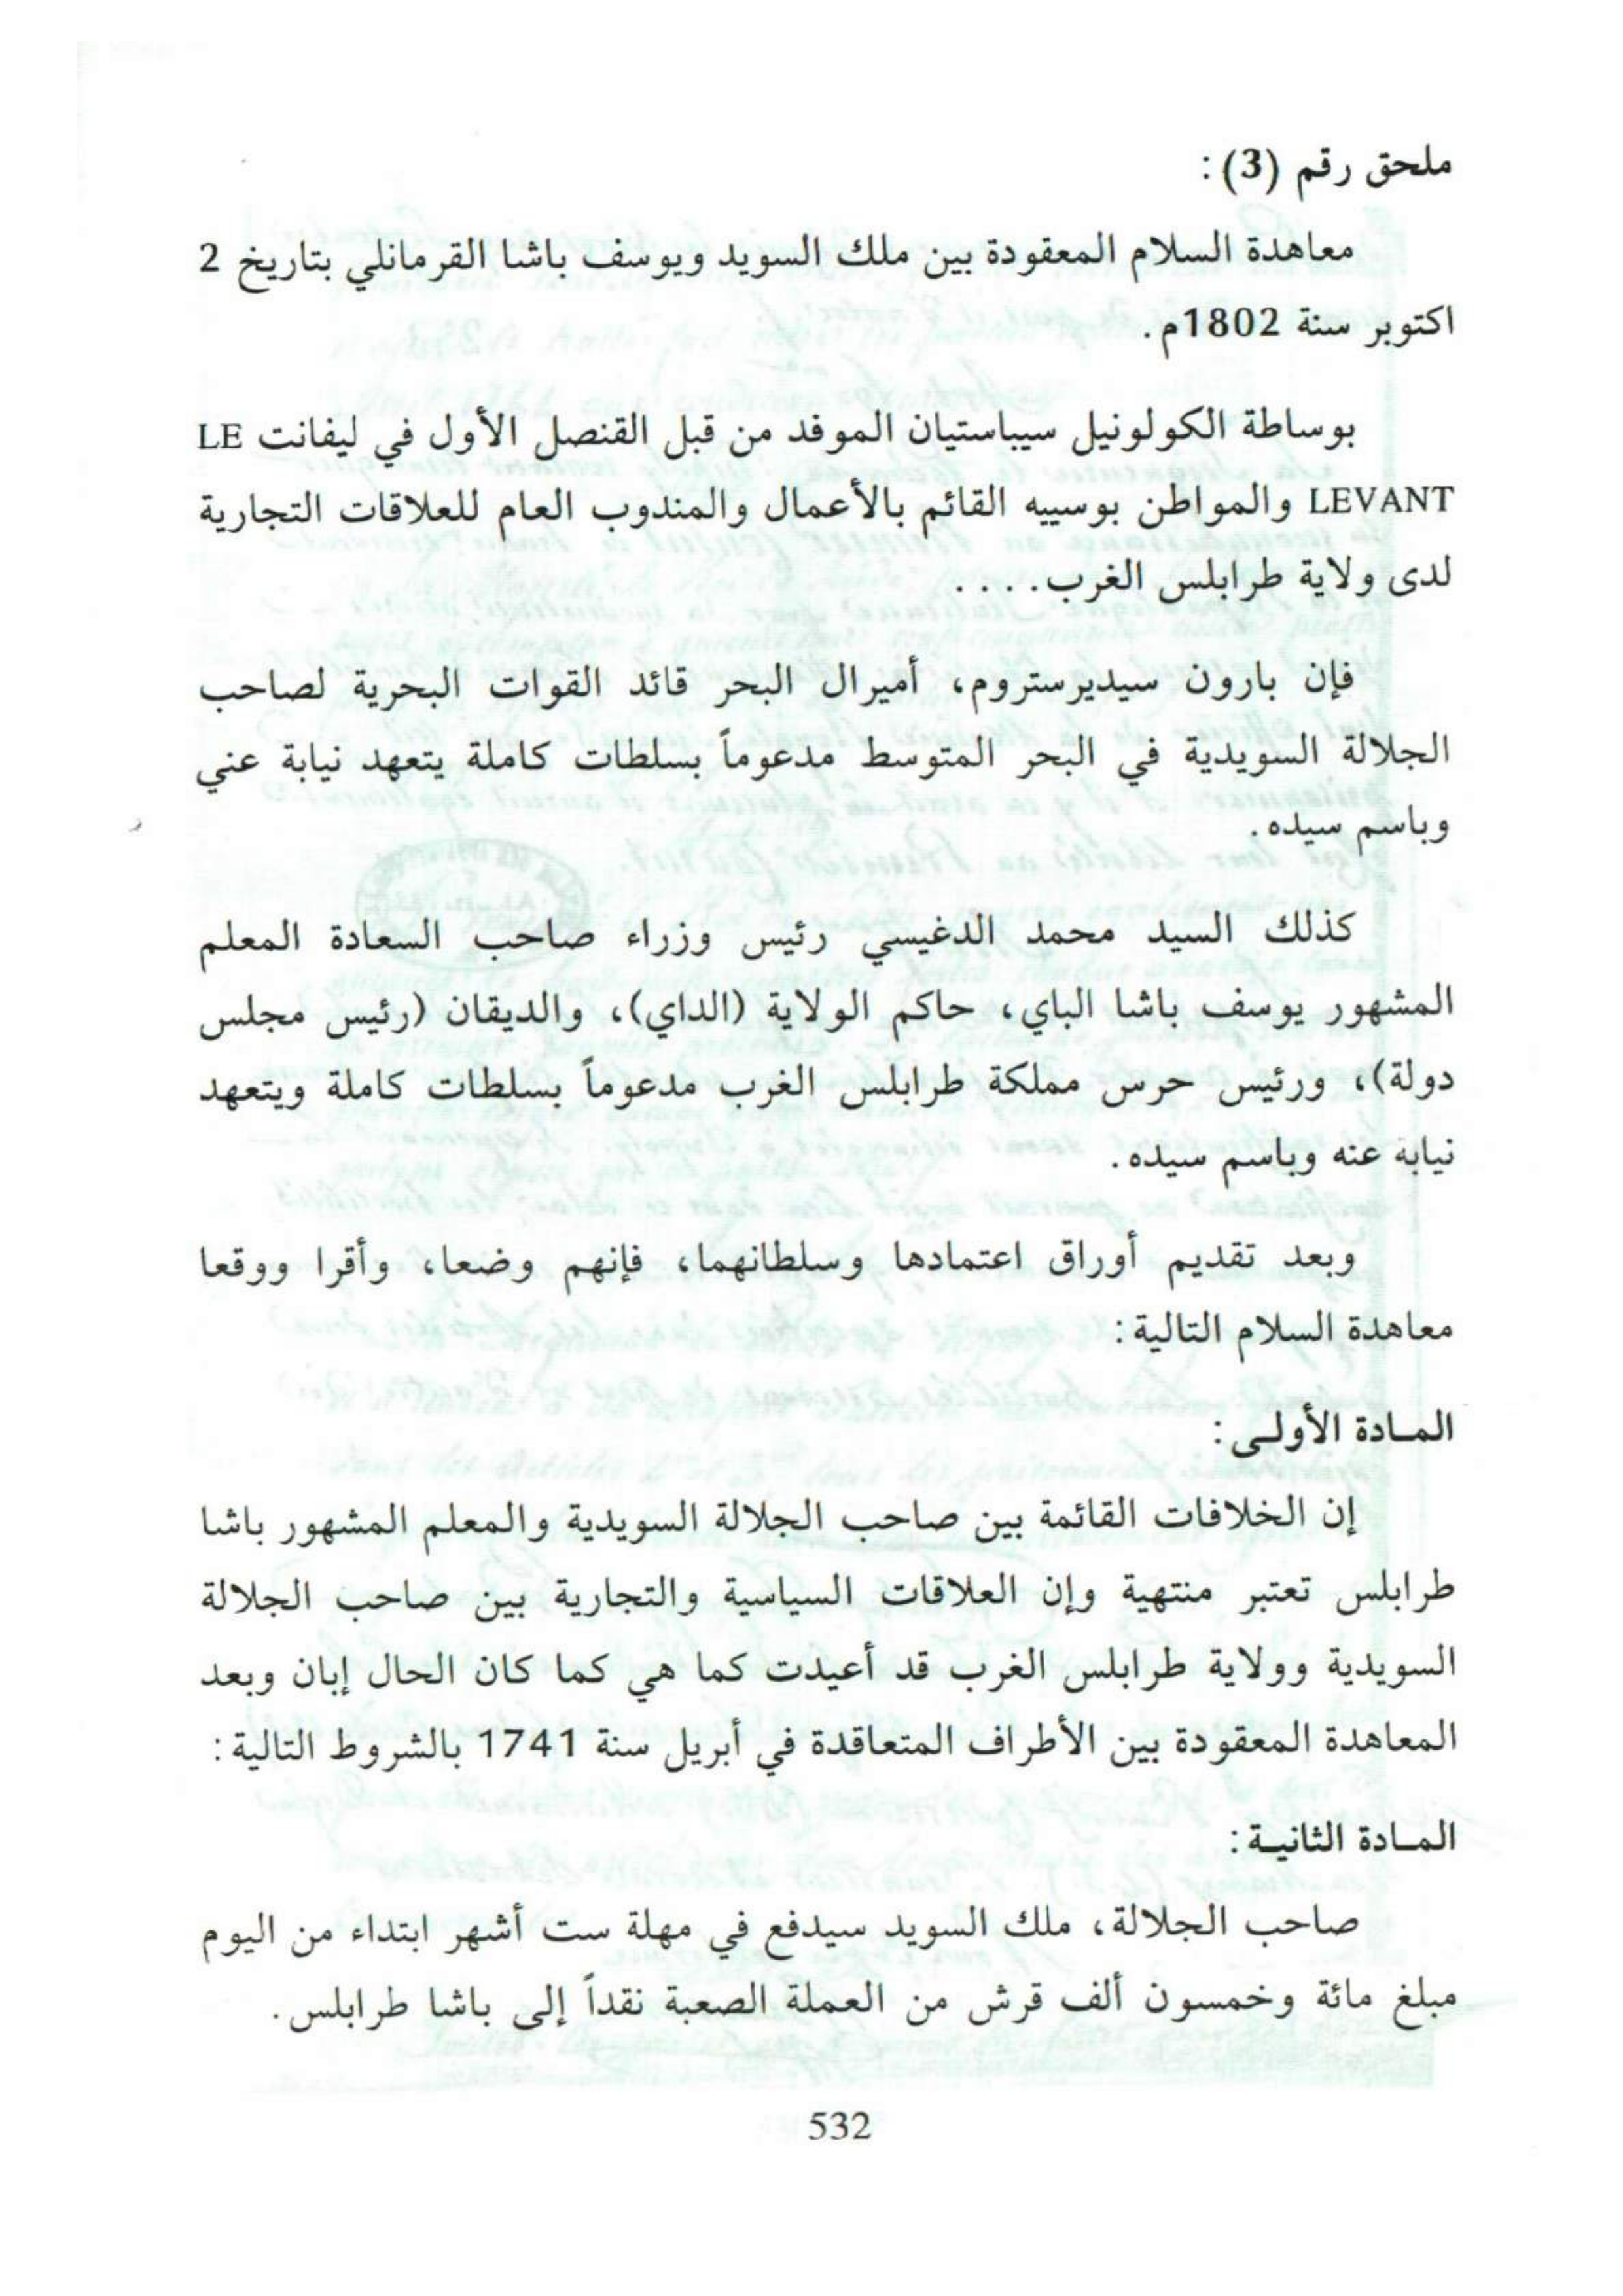 ملحق رقم (3):
معاهدة السلام المعقودة بين ملك السويد ويوسف باشا القرمانلي بتاريخ 2
اكتوبر سنة 1802م.
بوساطة الكولونيل سيباستيان الموفد من قبل القنصل الأول في ليفانت LE
LEVANT والمواطن بوسييه القائم بالأعمال والمندوب العام للعلاقات التجارية
لدى ولاية طرابلس الغرب. . . . .
فإن بارون سيديرستروم، أميرال البحر قائد القوات البحرية لصاحب
الجلالة السويدية في البحر المتوسط مدعوماً بسلطات كاملة يتعهد نيابة عني
وباسم سيده.
كذلك السيد محمد الدغيسي رئيس وزراء صاحب السعادة المعلم
المشهور يوسف باشا الباي، حاكم الولاية (الداي)، والديقان (رئيس مجلس
دولة)، ورئيس حرس مملكة طرابلس الغرب مدعوماً بسلطات كاملة ويتعهد
نيابة عنه وباسم سيده.
وبعد تقديم أوراق اعتمادها وسلطانهما، فإنهم وضعا، وأقرا ووقعا
معاهدة السلام التالية:
المـادة الأولـى:
إن الخلافات القائمة بين صاحب الجلالة السويدية والمعلم المشهور باشا
طرابلس تعتبر منتهية وإن العلاقات السياسية والتجارية بين صاحب الجلالة
السويدية وولاية طرابلس الغرب قد أعيدت كما هي كما كان الحال إبان وبعد
المعاهدة المعقودة بين الأطراف المتعاقدة في أبريل سنة 1741 بالشروط التالية:
المـادة الثانيـة:
صاحب الجلالة، ملك السويد سيدفع في مهلة ست أشهر ابتداء من اليوم
مبلغ مائة وخمسون ألف قرش من العملة الصعبة نقداً إلى باشا طرابلس.
532